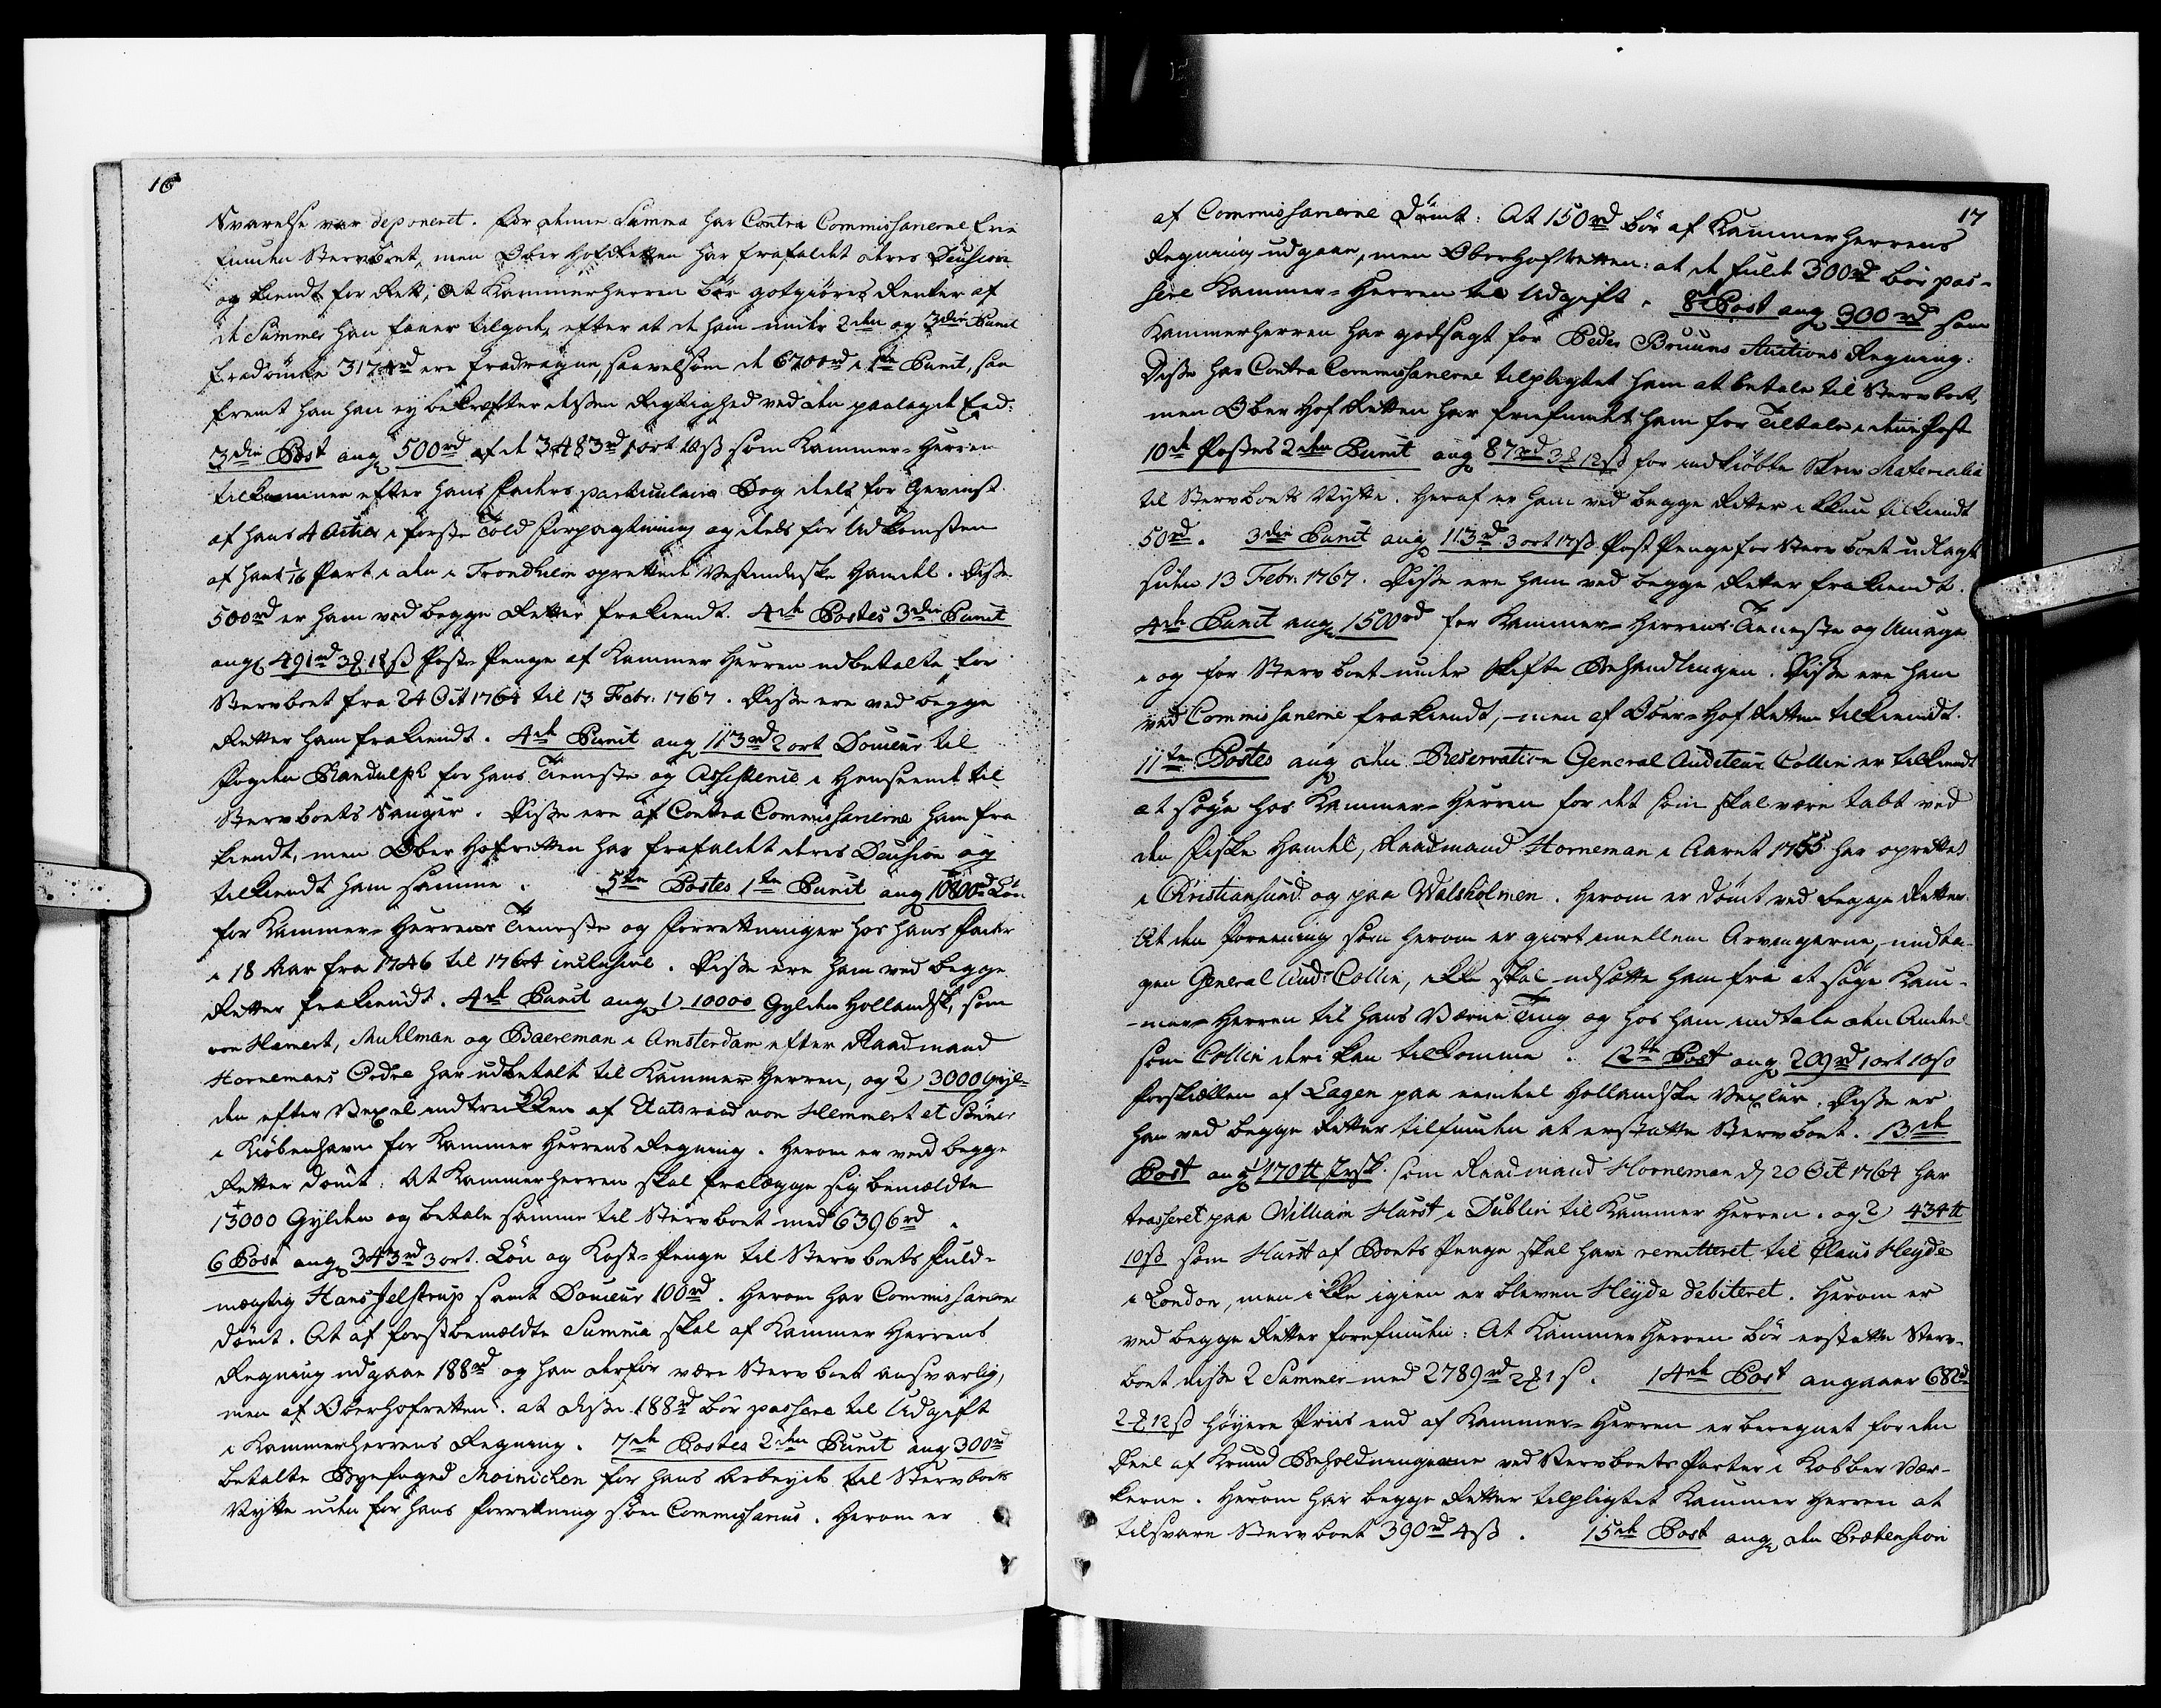 16
Svarelse var deponeret. For denne Summa har Contra Commissarierne frie
funden Stervboet, men Ober Hof Retten har frafaldet deres Decision
og kiendt for Rett, at Kammerherren bør godtgiøres Renter af
de Summer han faaer tilgode, efter at de ham under 2den og 3die Punct
fradømte 3174rd ere fradragne, saavelsom de 6700rd i 1ste Punct, saa
fremt han ey bekræfter disses Rigtighed ved den paalagde Eed:
3die Post ang 500rd af de 3483rd 1 ort ß som Kammer-Herren
tilkommer efter hans Faders particulaire Bog deels for Gevinst
af hans 4 Actier i første Told Forpagtning og deels for Udkomsten
af hans 1/16 Part i den i Trondhiem oprettede Vestindiske Handel. Disse
500rd er ham ved begge Retter frakiendt. 4de Postes 3die Punct
ang 491rd 3 18ß Post-Penge af Kammer Herren udbetalte for
Stervboet fra 24 Oct 1764 til 13 Febr: 1767. Disse ere ved begge
Retter ham frakiendt. 4de Punct ang 113rd 2 ort Douceur til
Fogden Randulph for hans Tieneste og Assistence i Henseende til
Stervboets Sauger. Disse ere af Contra Commissarierne ham fra
kiendt, men Ober Hofretten har frafaldet deres Decision og
tilkiendt ham samme. 5te Postes 1te Punct ang 10800rd Løn
for Kammer-Herrens Tieneste og Forretninger hos hans Fader
i 18 Aar fra 1746 til 1764 inclusive. Disse ere ham ved begge
Retter frakiendt. 4de Punct ang 1) 10000 Gylden Hollandsk, som
von Hemert, Muhlman og Baereman i Amsterdam efter Raadmand
Hornemans Ordre har udbetalt til Kammer Herren, og 2) 3000 Gyl-
den efter Vexel indtrukken af Etatsraad von Hemmert et Sønner
i Kiøbenhavn for Kammer Herrens Regning. Herom er ved begge
Retter dømt: At Kammerherren skal fralægge sig bemældte
13000 Gylden og betale samme til Stervboet med 6396rd.
6 Post ang 343rd 3 ort. Løn og Kost-Penge til Stervboets Fuld-
mægtig Hans Jelstrup samt Douceur 100rd. Herom har Commissarierne
dømt. At af førstbemældte Summa skal af Kammer Herrens
Regning udgaae 188rd og han derfor være Stervboet ansvarlig,
men af Oberhofretten: at disse 188rd bør passere til Udgift
i Kammerherrens Regning. 7de Postes 2den Punct ang 300rd
betalte Byefoged Moinichen for hans Arbeyde til Stervboets
Nytte uden for hans Forretning som Commissarius. Herom er
17
af Commissarierne dømt: At 150rd bør af Kammerherrens
Regning udgaae, men Oberhofretten: at de fulde 300rd bør pas-
sere Kammer-Herren til Udgift. 8de Post ang 300rd som
Kammerherren har godsagt for Peder Bruuns Auctions Regning.
Disse har Contra Commissarierne tilpligtet ham at betale til Stervboet,
men Ober Hof Retten har friefundet ham for Tiltale i denne Post
10de Postes 2den Punct ang 87rd 3 12ß for indkiøbte Skriv Materialia
til Stervboets Nytte. Heraf er ham ved begge Retter ikkun tilkiendt
50rd. 3die Punct ang 113rd 3 ort 17ß Post Penge for Stervboet udlagt
siden 13 Febr: 1767. Disse ere ham ved begge Retter frakiendt.
4de Punct ang 1500rd for Kammer-Herrens Tieneste og Umage
i og for Stervboet under Skifte Behandlingen. Disse ere ham
ved Commissarierne frakiendt, men af Ober-Hof Retten tilkiendt.
11te Postes ang den Reservation General Auditeur Collin er tilkiendt
at søge hos Kammer-Herren for det som skal være tabt ved
den Fiske Handel, Raadmand Horneman i Aaret 1755 har oprettet
i Christiansund og paa Walsholmen. Herom er dømt ved begge Retter
At den Foreening som herom er giort imellem Arvingerne, undta-
gen General Aud: Collin, ikke skal udsætte ham fra at søge Kam-
-mer-Herren til hans Værne Ting og hos ham indtale den Andeel
som Collin deri kan tilkomme. 12te Post ang 209rd 1 ort 10ß
forskiællen af Lagen paa eendeel Hollandske Vexler. Disse er
han ved begge Retter tilfunden at erstatte Stervboet. 13de
Post ang 1) 170 ℔ Irsk: som Raadmand Horneman d 20 Oct 1764 har
trasseret paa William Hurst i Dublin til Kammer Herren. og 2) 434 ℔
10ß som Hurst af Boets Penge skal have remitteret til Claus Heyde
i London, men ikke igien er bleven Heyde debiteret. Herom er
ved begge Retter forefunden: At Kammer Herren bør erstatte Sterv-
boet disse 2 Summer med 2789rd 2 1ß. 14de Post angaaer 682rd
2 12ß høyere Priis end af Kammer-Herren er beregnet for den
Deel af Krund Beholdningerne ved Stervboets Parter i Kobber Vær-
kerne. Herom har begge Retter tilpligtet Kammer Herren at
tilsvare Stervboet 390rd 4ß. 15de Post ang den Prætension